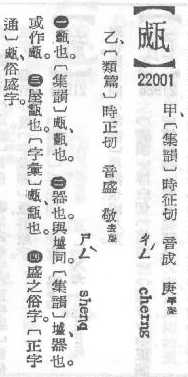 【㼩】
22001
甲、〔集韻〕時征切 音成 庚平聲
ㄔㄥˊ cherng
乙、〔類篇〕時正切 音盛 敬去聲
ㄕㄥˋ sheng
㊀甑也。〔集韻〕㼩、甑也。㊁器也。與墭同〔集韻〕墭、器也。
或作㼩。㊂屋甑也。〔字彙〕㼩、甑也。㊃盛之俗字。〔正字
通〕㼩、俗盛字。